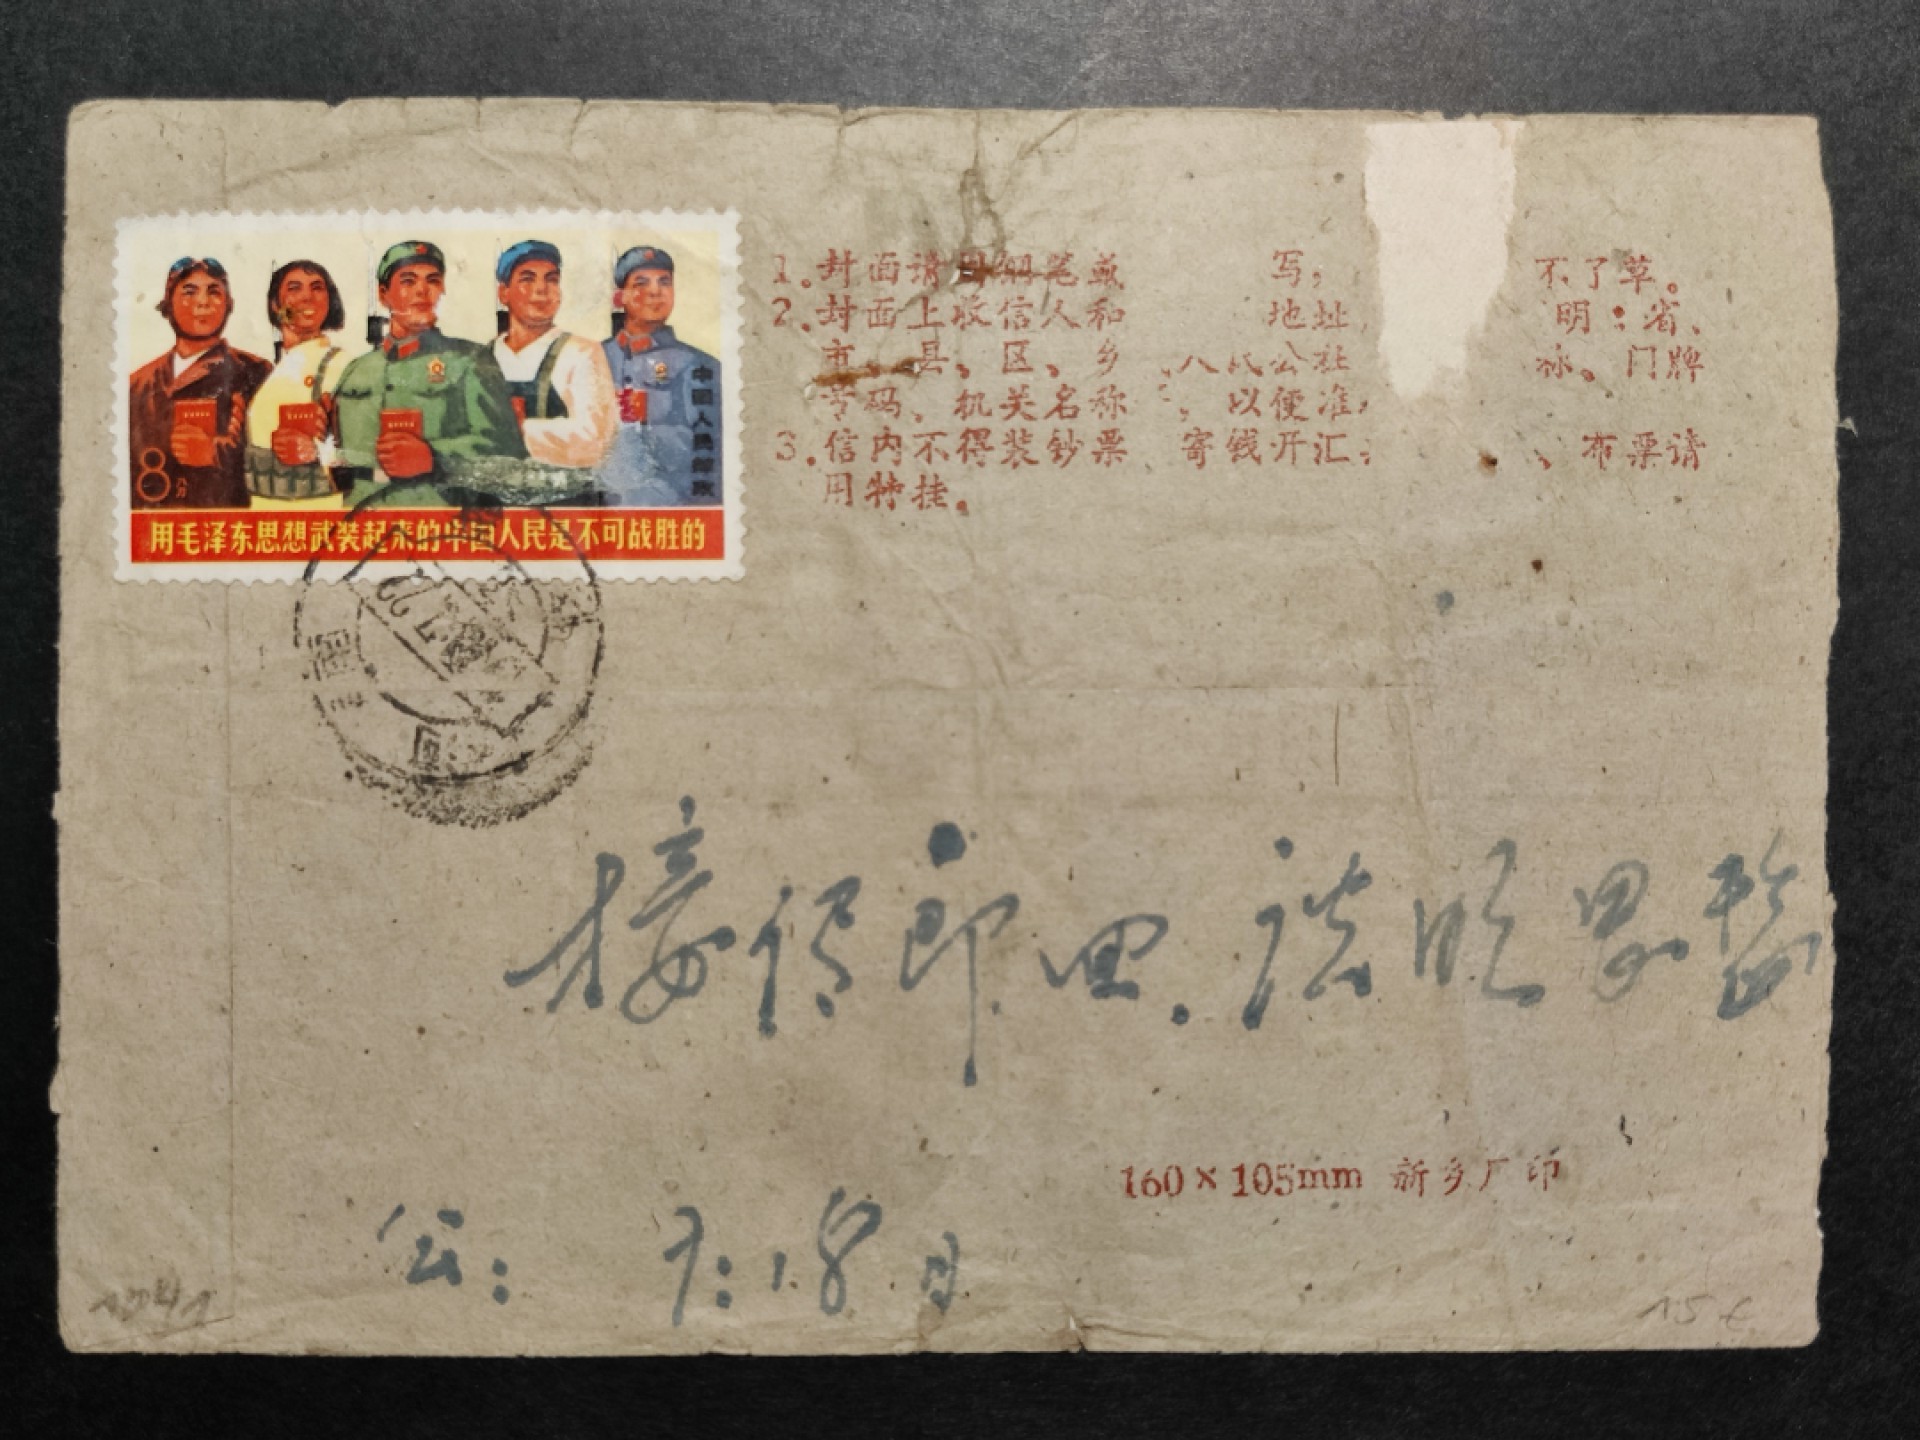 中国人民邮政
8分
用毛泽东思想武装起来的中国人民是不可战胜的
1.封面请用钢笔或 写, 不了草。
2.封面上收信人和 地址 明:省、
市、县、区、乡 、人民公社 称、门牌
号码、机关名称 , 以便准
3.信内不得装钞票 寄钱开汇 、布票请
用特挂。
接信即回.
160×105mm 新乡厂印
公: 7:18日
15€